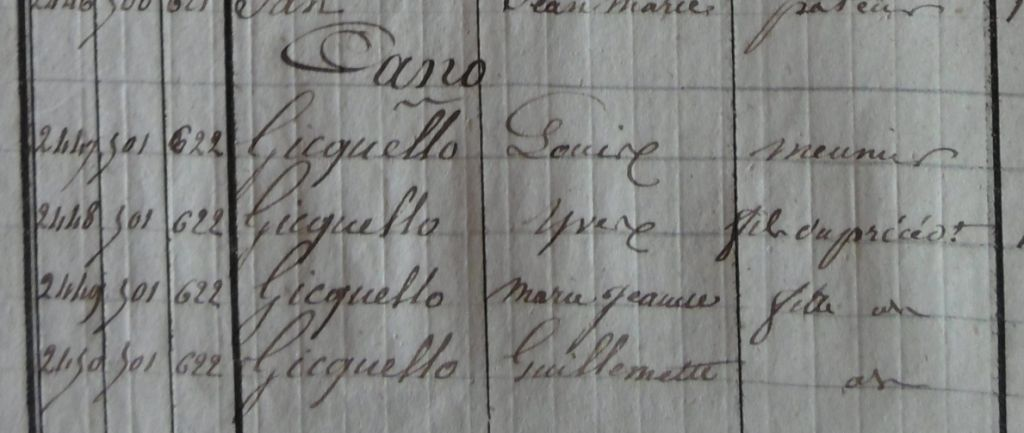 2446 500 621 Jan Jean Marie
Cano
2447 501 622 Gicquello Louise meunier
2448 501 622 Gicquello Yvese fils du précédt
2449 501 622 Gicquello Marie Jeanne fille
2450 501 622 Gicquello Guillemette